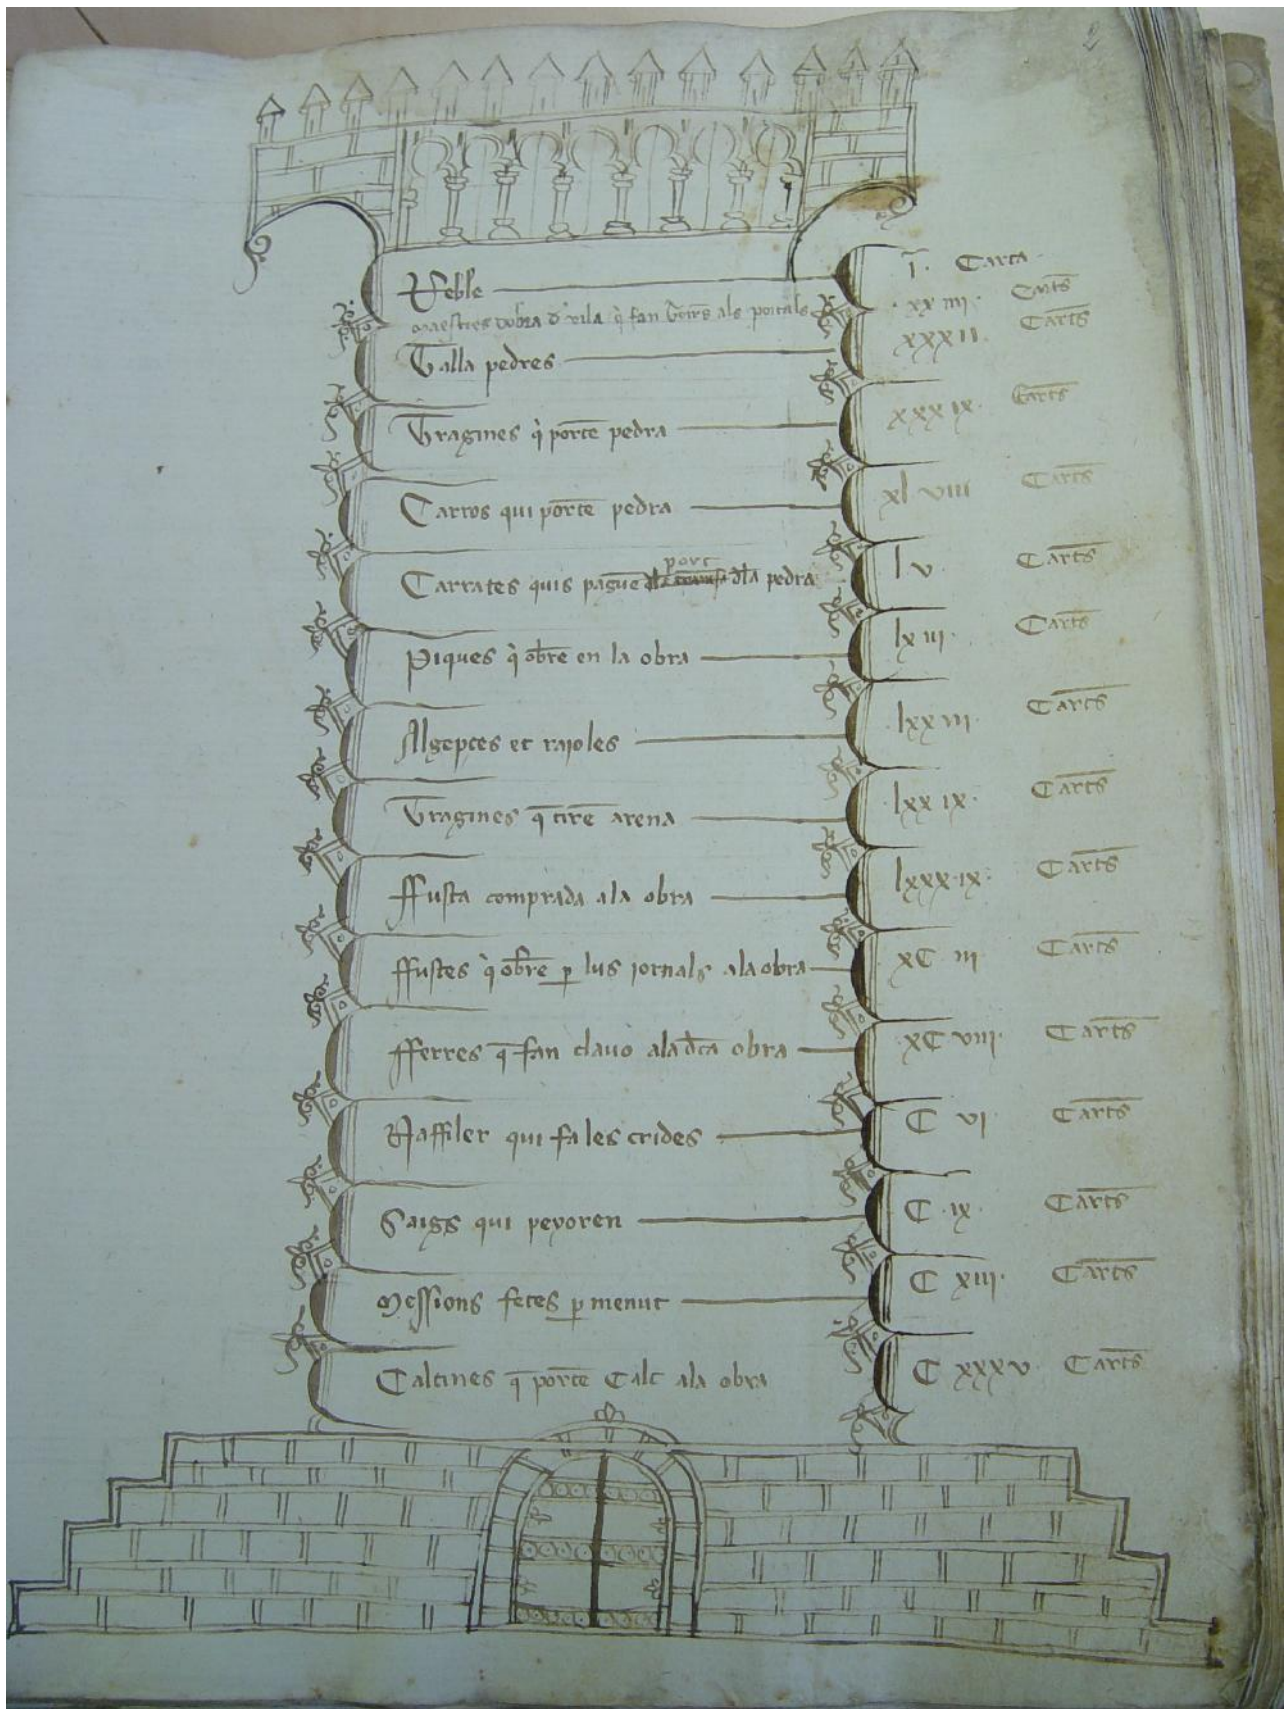 2
Reble I Carta
maestres dobra d vila q fan als portals xx iiii Carts
Talla pedres xxxii Carts
Tragines q porte pedra xxxix Carts
Carros qui porte pedra xl viii Carts
port
Carrates quis pague dla pedra lv Carts
Piques q obre en la obra lx iii Carts
Algeptes et rajoles Carts
Tragines q tire arena lxx ix Carts
Ffusta comprada ala obra lxxx ix Carts
ffustes q obre p lus jornals ala obra xC iii Carts
fferres q fan clavo ala dca obra xC viii Carts
Naffiler qui fa les crides C vi Carts
Saigs qui peyoren C ix Carts
Messions fetes p menut C xiii Carts
Calcines q porte Calc ala obra C xxxv Carts